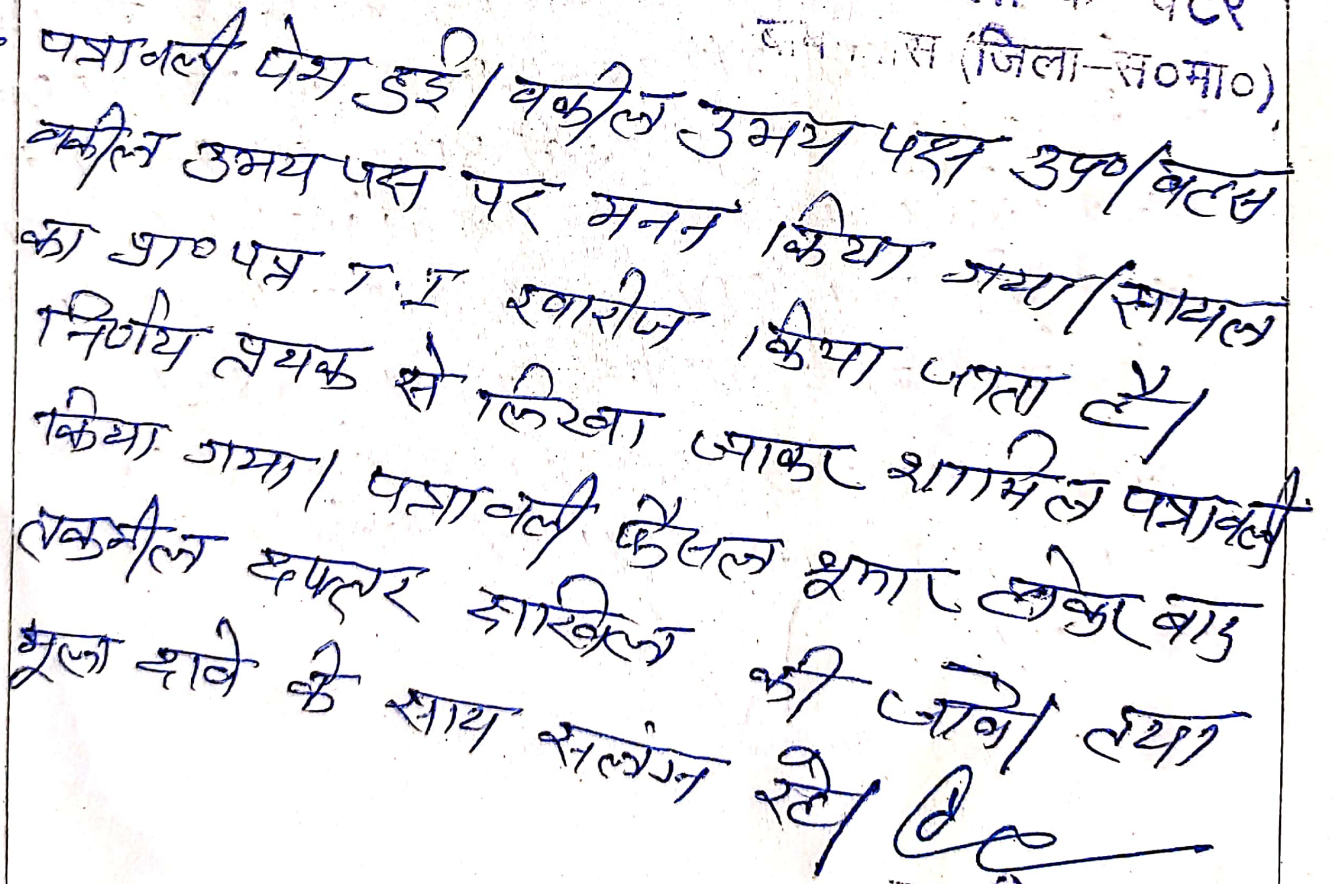 स (जिला-स०मा०)
पत्रावली पेश हुई। वकील उभय पक्ष उप०। बहस
वकील उभय पक्ष पर मनन किया गया। सायल
का प्रा० पत्र T.I खारीज किया जाता है।
निर्णय प्रथक से लिखा जाकर शामिल पत्रावली
किया गया। पत्रावली फैसल शुमार होकर बाद
तकमील दफ्तर दाखिल की जावे। तथा
मूल दावे के साथ सलंग्न रहे।